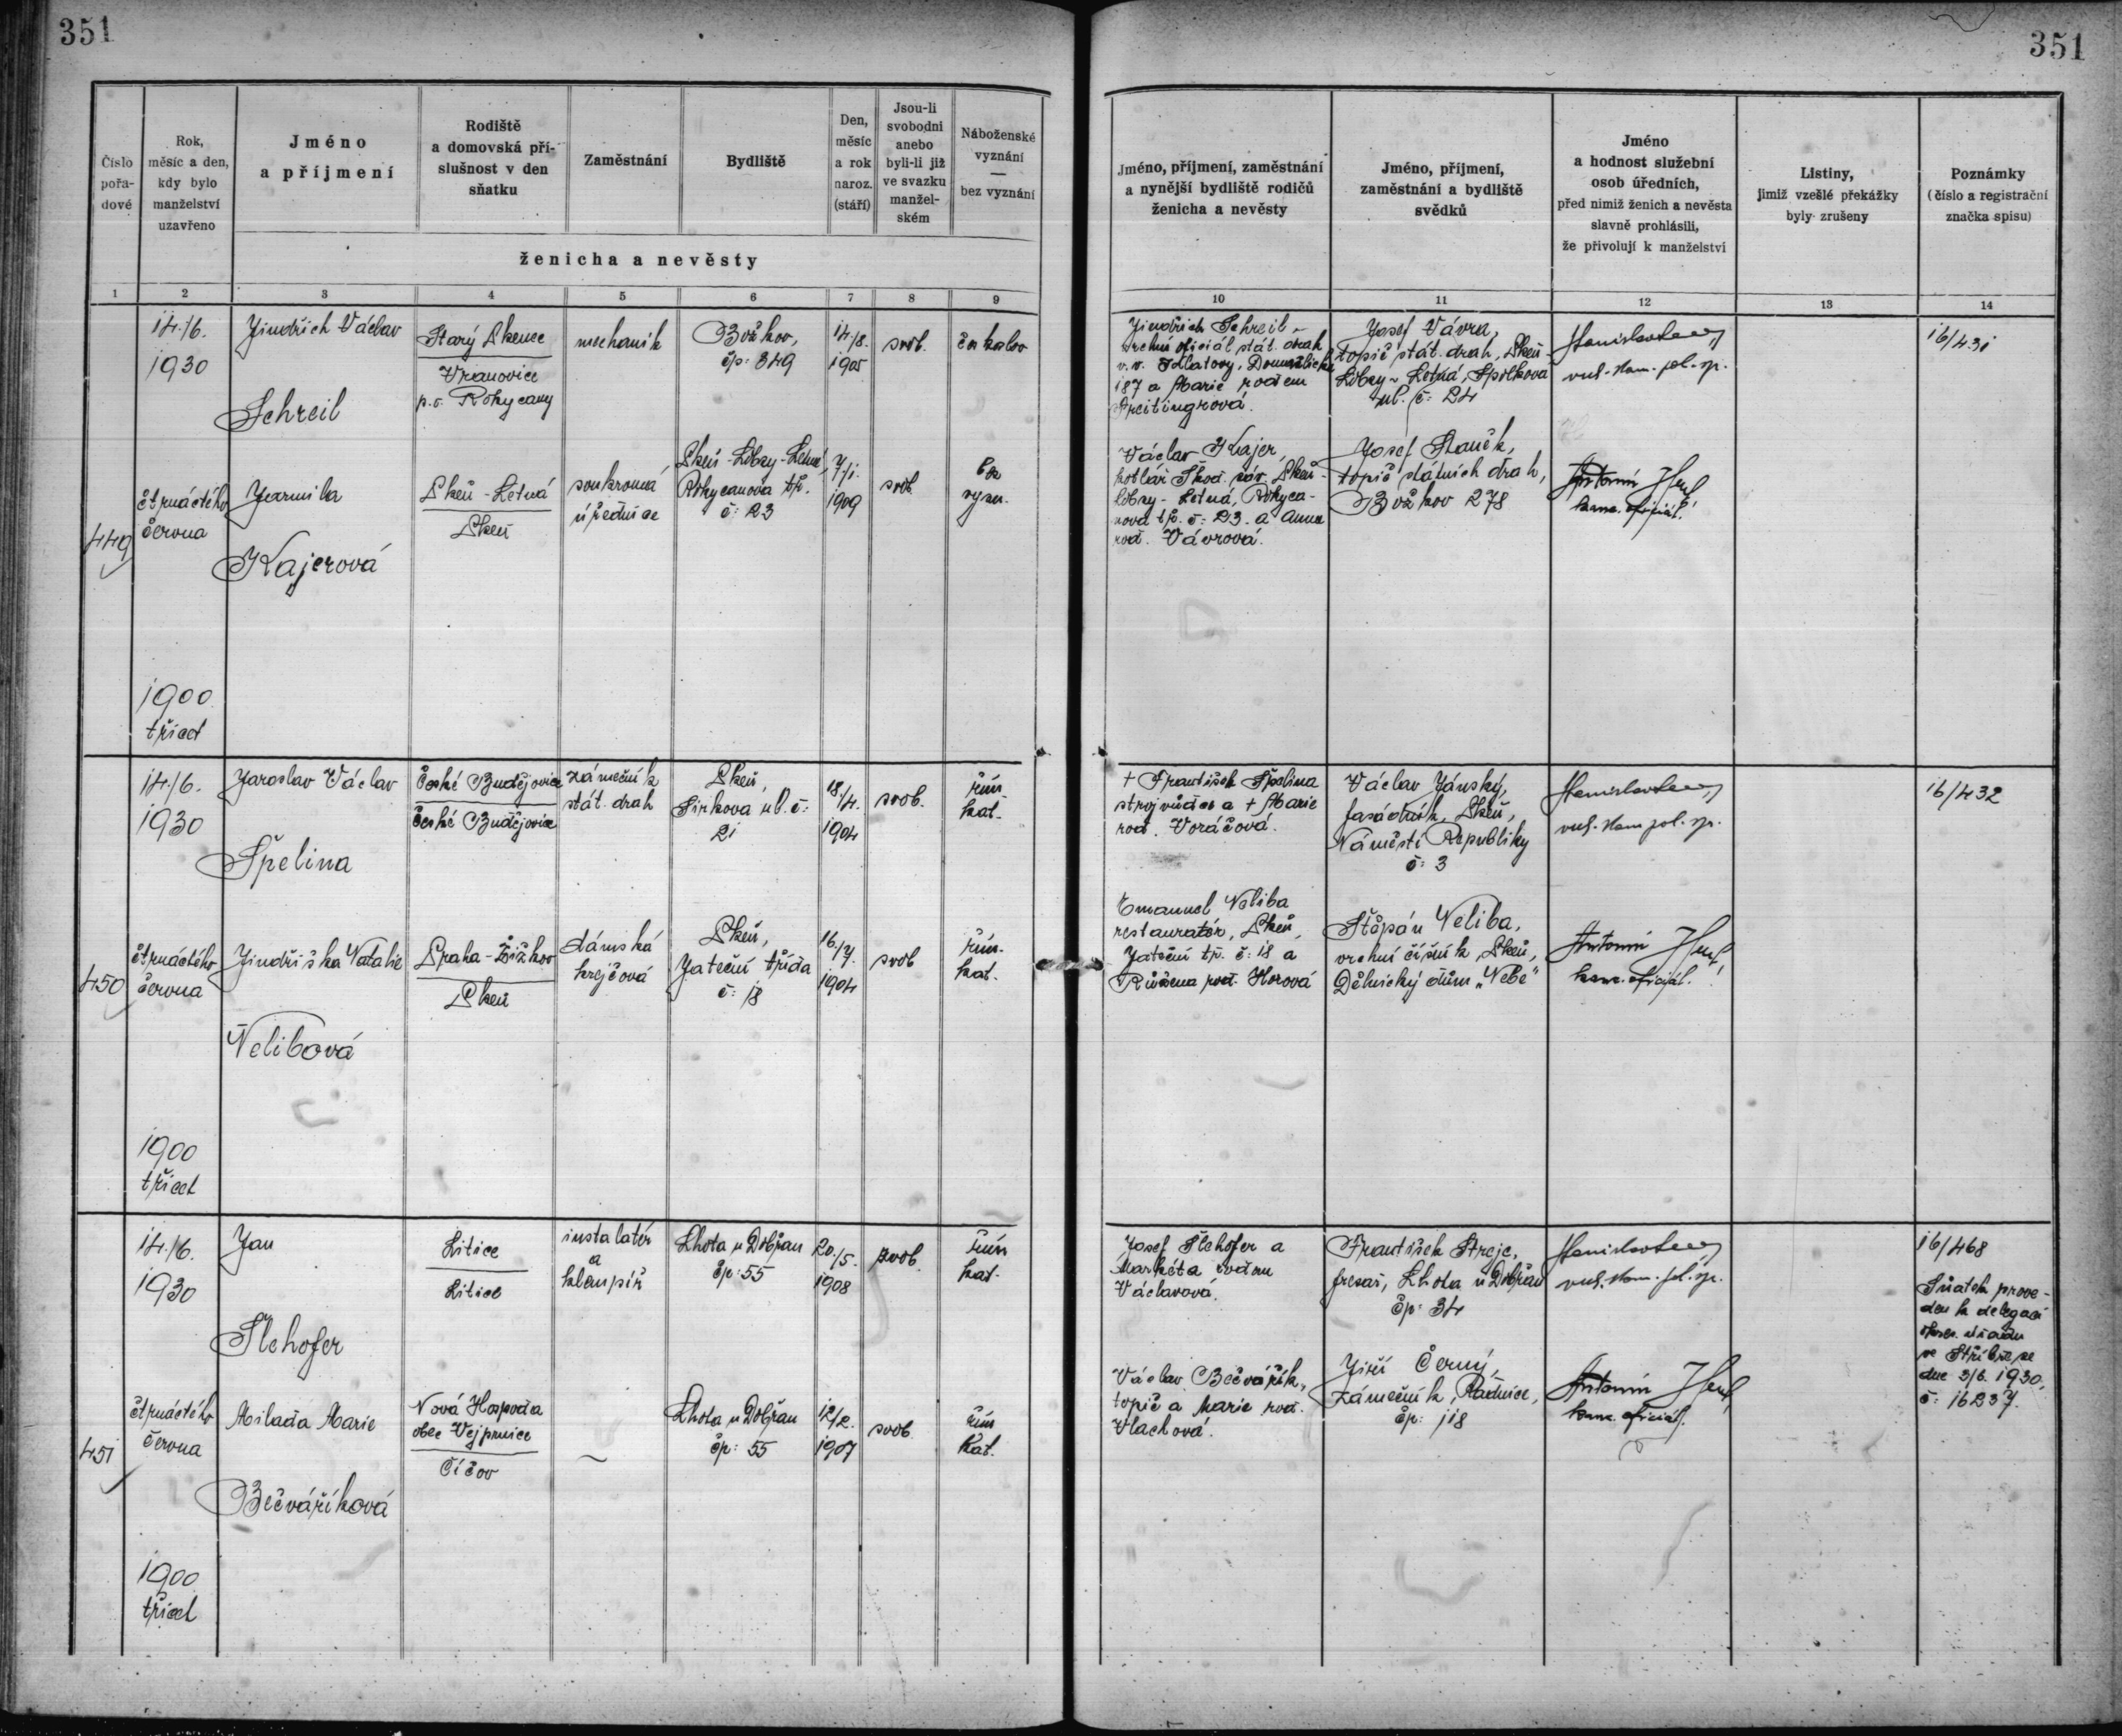 351
351
Číslo pořadové
Rok, měsíc a den, kdy bylo manželství uzavřeno
Jméno a příjmení
Rodiště a domovská příslušnost v den sňatku
Zaměstnání
Bydliště
Den, měsíc a rok naroz. (stáří)
Jsou-li svobodni anebo byli-li již ve svazku manželském
Náboženské vyznání — bez vyznání
ženicha a nevěsty
Jméno, příjmení, zaměstnání a nynější bydliště rodičů ženicha a nevěsty
Jméno, příjmení, zaměstnání a bydliště svědků
Jméno a hodnost služební osob úředních, před nimiž ženich a nevěsta slavně prohlásili, že přivolují k manželství
Listiny, jimiž vzešlé překážky byly zrušeny
Poznámky (číslo a registrační značka spisu)
1 2 3 4 5 6 7 8 9 10 11 12 13 14
449
14./6.
1930
čtrnáctého
června
1900
třicet
Jindřich Václav
Schreil
Starý Plzenec
Vranovice
p.o. Rokycany
mechanik
Božkov,
čp: 349
14./8.
1905
svob.
Jindřich Schreil
vrchní oficiál stát. drah
v.v. Klatovy, Domažlická
187 a Marie rodem
Josef Vávra,
topič stát. drah, Plzeň
Lobzy - Letná, Spolková
ul. č: 24
16/431
Jarmila
Kajerová
Plzeň - Letná
Plzeň
soukromá
úřednice
Plzeň - Lobzy - Letná,
Rokycanova tř.
č: 23
7/1.
1909
svob.
bez
vyzn.
Václav Kajer,
kotlář Škod. záv. Plzeň -
Lobzy - Letná, Rokyca-
nova tř. č: 23. a Anna
rod. Vávrová.
Josef Staněk,
topič státních drah,
Božkov 278
Antonín
kanc. oficiál.
450
14./6.
1930
čtrnáctého
června
1900
třicet
Jaroslav Václav
Špelina
České Budějovice
České Budějovice
zámečník
stát. drah
Plzeň,
Sirkova ul. č:
21
18./4.
1904
svob.
řím.
kat.
+ František Špelina
strojvůdce a + Marie
rod. Voráčová.
Václav Jánský,
fasádník, Plzeň,
Náměstí Republiky
č: 3
16/432
Jindřiška Natalie
Nelibová
Praha - Žižkov
Plzeň
dámská
krejčová
Plzeň,
Jateční třída
č: 18
16./7.
1904
svob
řím.
kat.
Emanuel Neliba
restauratér, Plzeň,
Jateční tř. č: 18 a
Růžena rod. Horová
Štěpán Neliba,
vrchní číšník, Plzeň,
Dělnický dům „Nebe"
Antonín
kanc. oficiál.
451
14./6.
1930
čtrnáctého
června
1900
třicet
Jan
Šlehofer
Litice
Litice
instalatér
a
klempíř
Lhota u Dobřan
čp: 55
20./5.
1908
svob.
řím
kat.
Josef Šlehofer a
Markéta rodem
Václavová.
František Strejc,
fresař, Lhota u Dobřan
čp: 34
16/468
Sňatek prove-
den k delegaci
okres. úřadu
ve Stříbře ze
dne 3/6. 1930,
č: 16237.
Milada Marie
Bečváříková
Nová Hospoda
obec Vejprnice
Číčov
~
Lhota u Dobřan
čp: 55
12/2.
1907
svob.
řím
kat.
Václav Bečvářík,
topič a Marie rod.
Vlachová.
Jiří Černý,
zámečník, Radnice,
čp: 118
Antonín
kanc. oficiál.